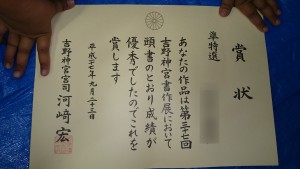 賞状
準特選
あなたの作品は第三十七回
吉野神宮書作展において
頭書のとおり成績が
優秀でしたのでこれを
賞します
平成二十七年九月二十三日
吉野神宮宮司 河﨑宏